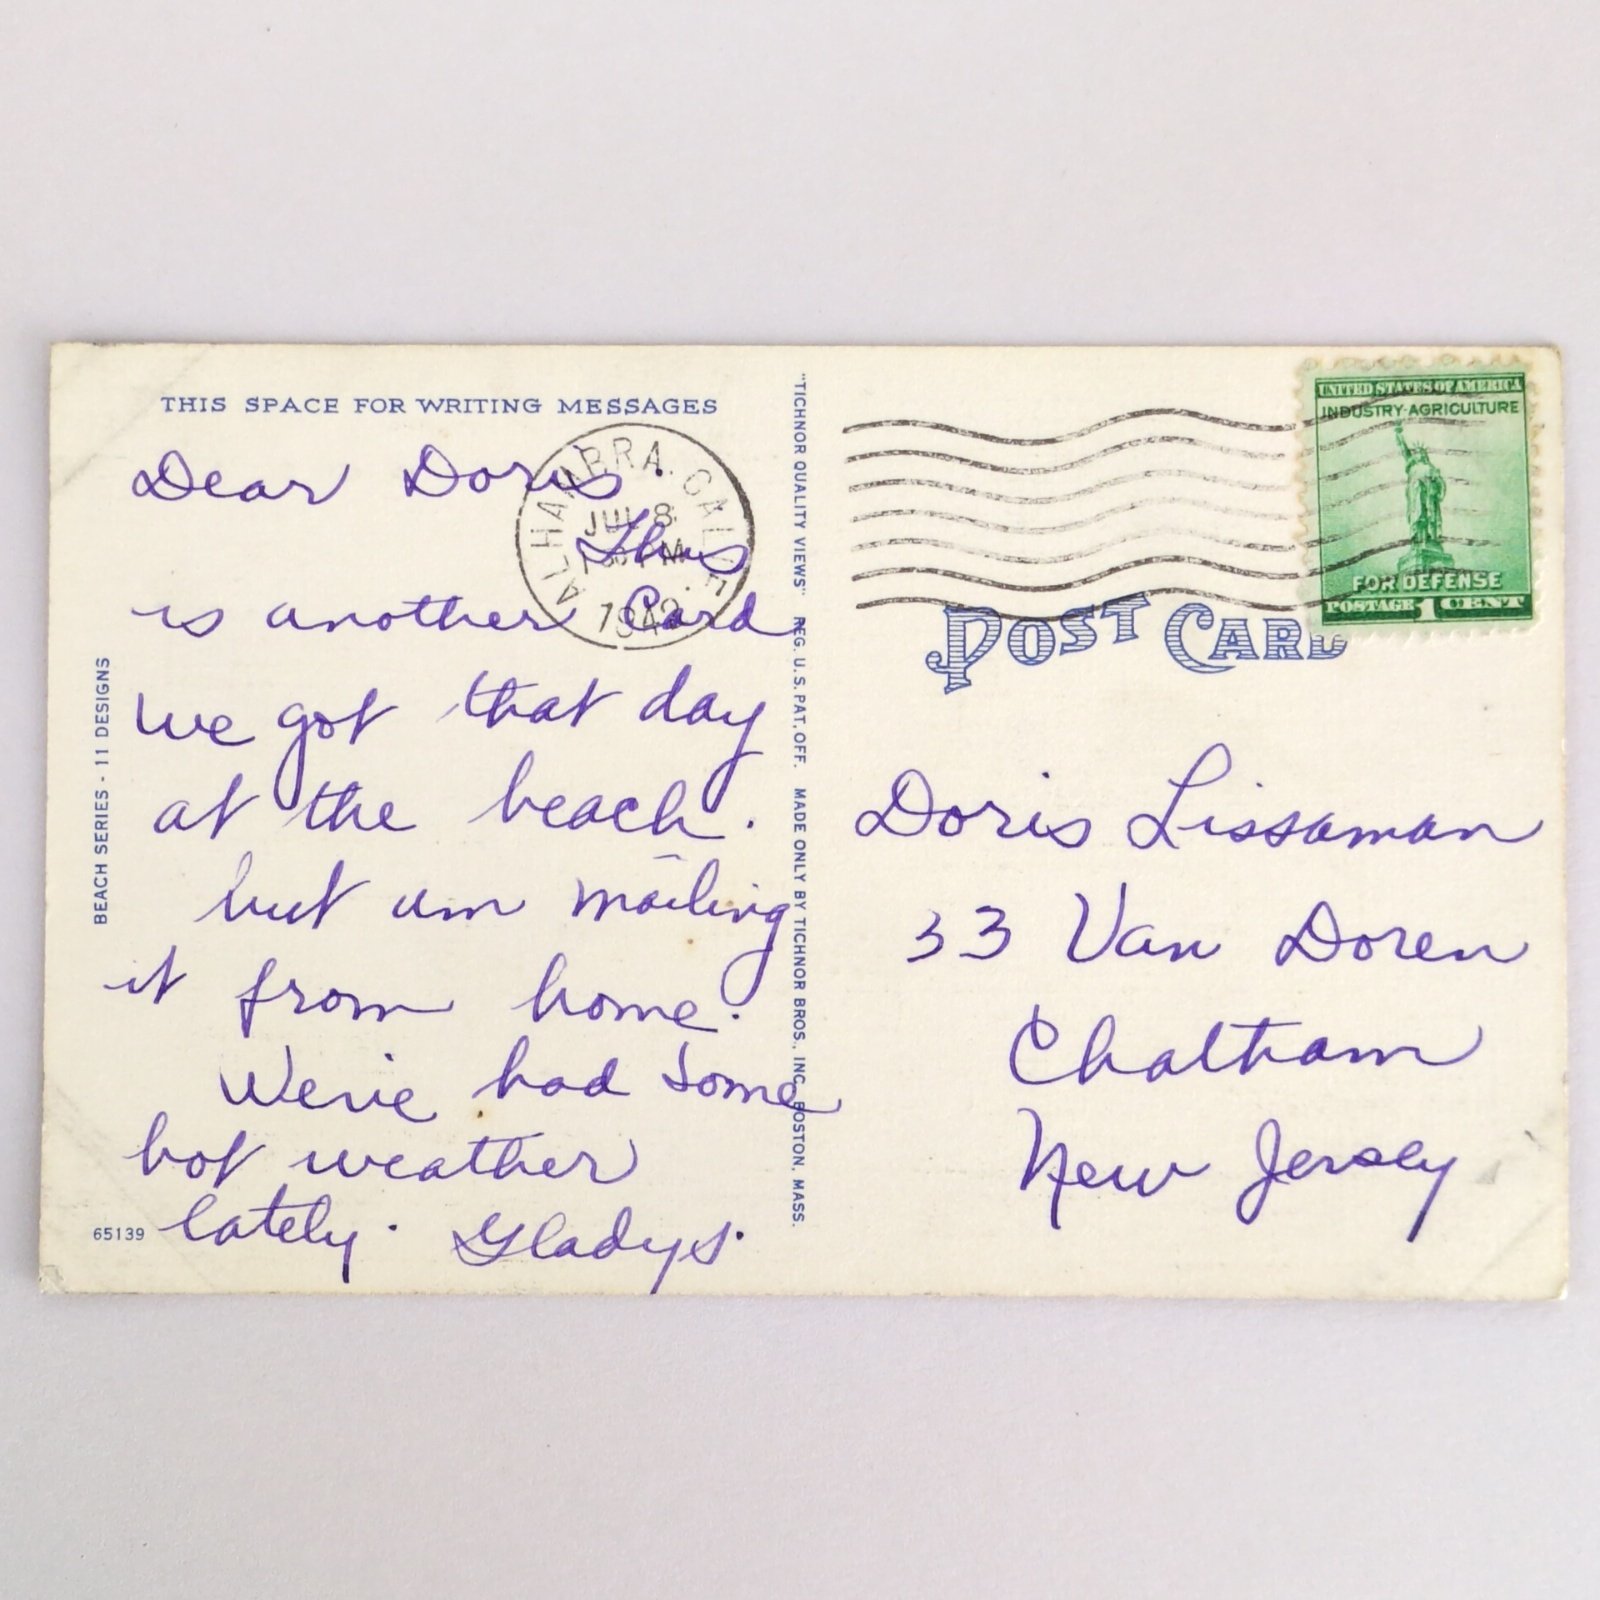 THIS SPACE FOR WRITING MESSAGES
Dear Doris.
This
is another Card
we got that day
at the beach.
but am mailing
it from home.
We've had some
hot weather
lately. Gladys.
BEACH SERIES - 11 DESIGNS
65139
ALHAMBRA. CALIF.
JUL 8
PM
1942
"TICHNOR QUALITY VIEWS" REG. U. S. PAT. OFF. MADE ONLY BY TICHNOR BROS., INC. BOSTON, MASS.
UNITED STATES OF AMERICA
INDUSTRY·AGRICULTURE
FOR DEFENSE
POSTAGE 1 CENT
POST CARD
Doris Lissaman
33 Van Doren
Chatham
New Jersey